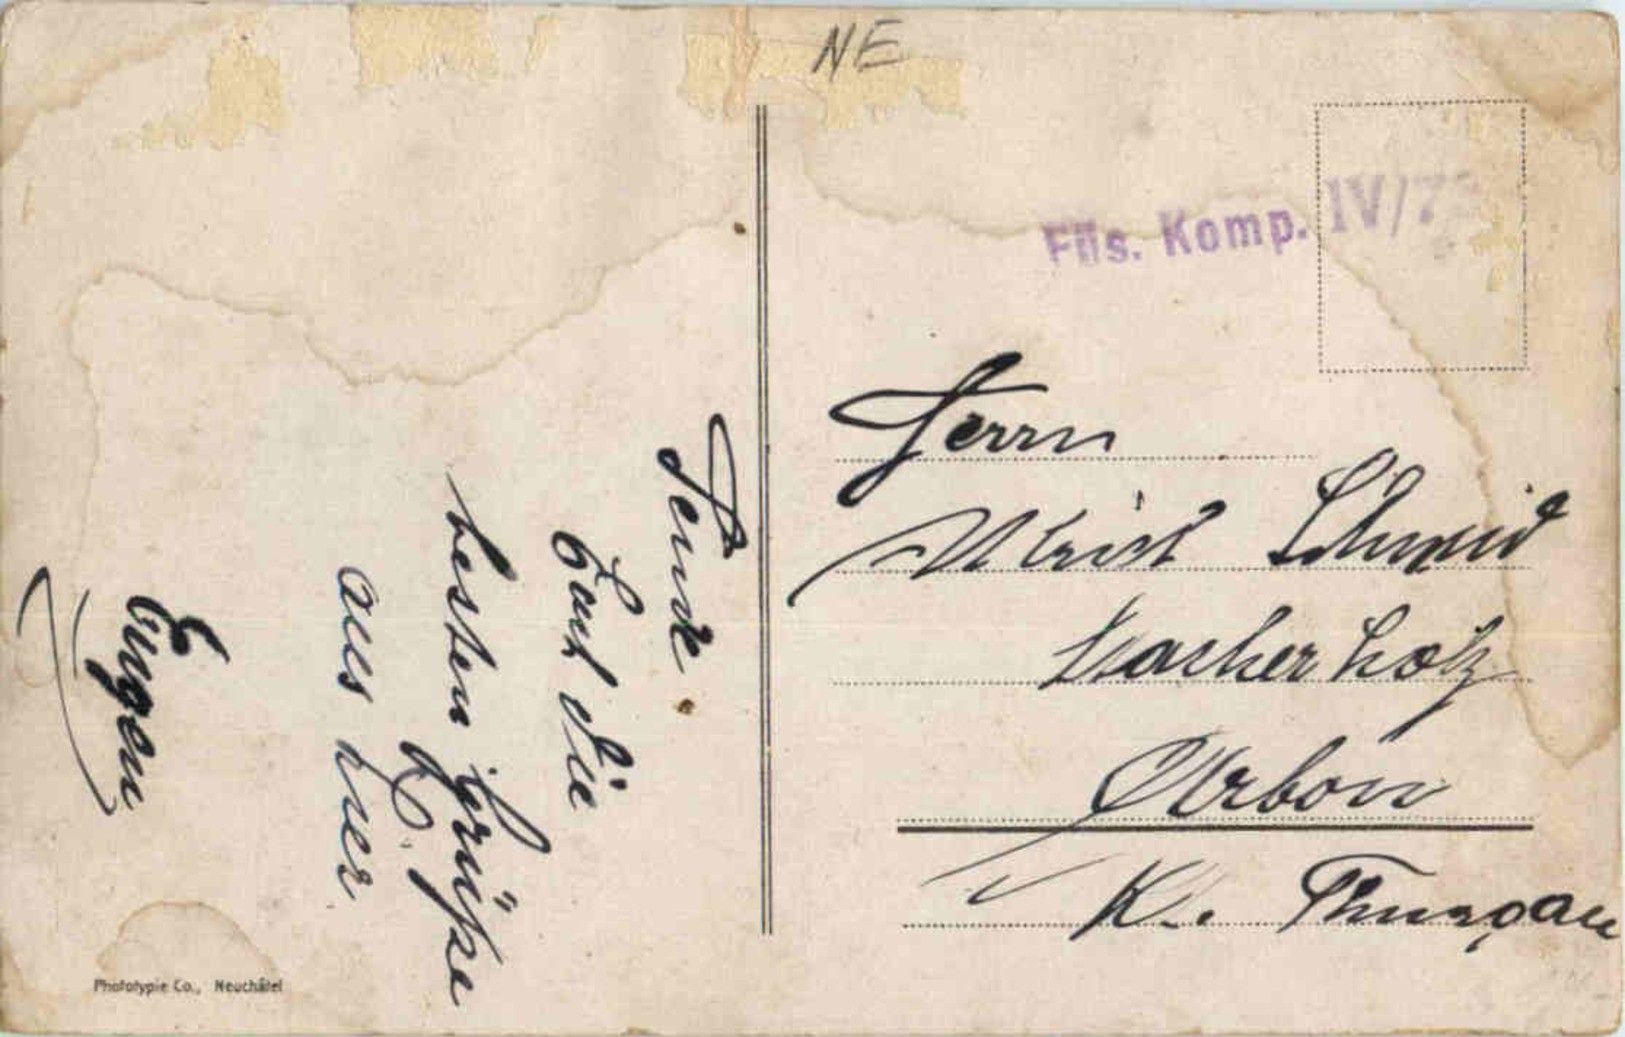 NE
Füs. Komp. IV/73
Herrn
Ulrich Schmid
Kacherholz
Arbon
K. Thurgau
Sende
Euch die
besten Grüsse
aus hier
Eugen
Phototypie Co., Neuchâtel